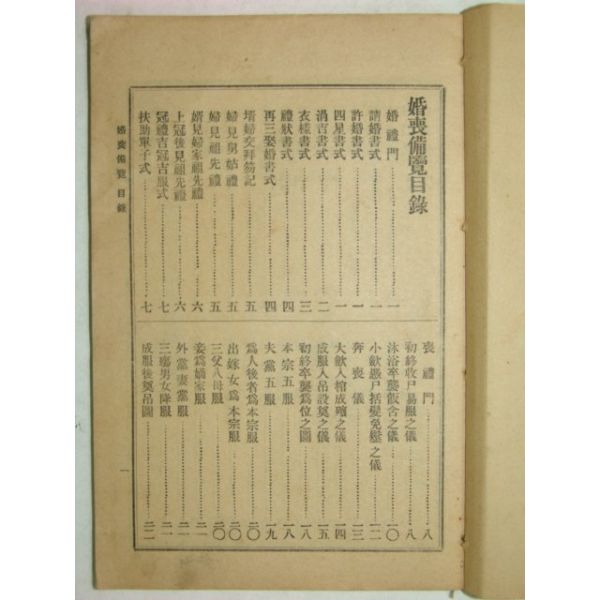 婚喪備覽目錄
婚禮門 一
請婚書式 一
許婚書式 一
四星書式 一
涓吉書式 二
衣樣書式 三
禮狀書式 四
再三娶婚書式 四
壻婦交拜笏記 五
婦見舅姑禮 五
婦見祖先禮 五
婿見婦家祖先禮 六
上冠後見祖先禮 六
冠禮吉冠吉服式 七
扶助單子式 七
喪禮門 八
初終收尸易服之儀 八
沐浴卒襲飯含之儀 一〇
小歛憑尸括髮免髽之儀 一二
奔喪儀 一三
大歛入棺成殯之儀 一四
成服人吊設奠之儀 一五
初終卒襲爲位之圖 一八
本宗五服 一八
夫黨五服 一九
爲人後者爲本宗服 二〇
出嫁女爲本宗服 二〇
三父八母服 二〇
妾爲嫡家服 二一
外黨妻黨服 二一
三殤男女降服 二一
成服後奠吊圖 二二
婚喪備覽 目錄
一